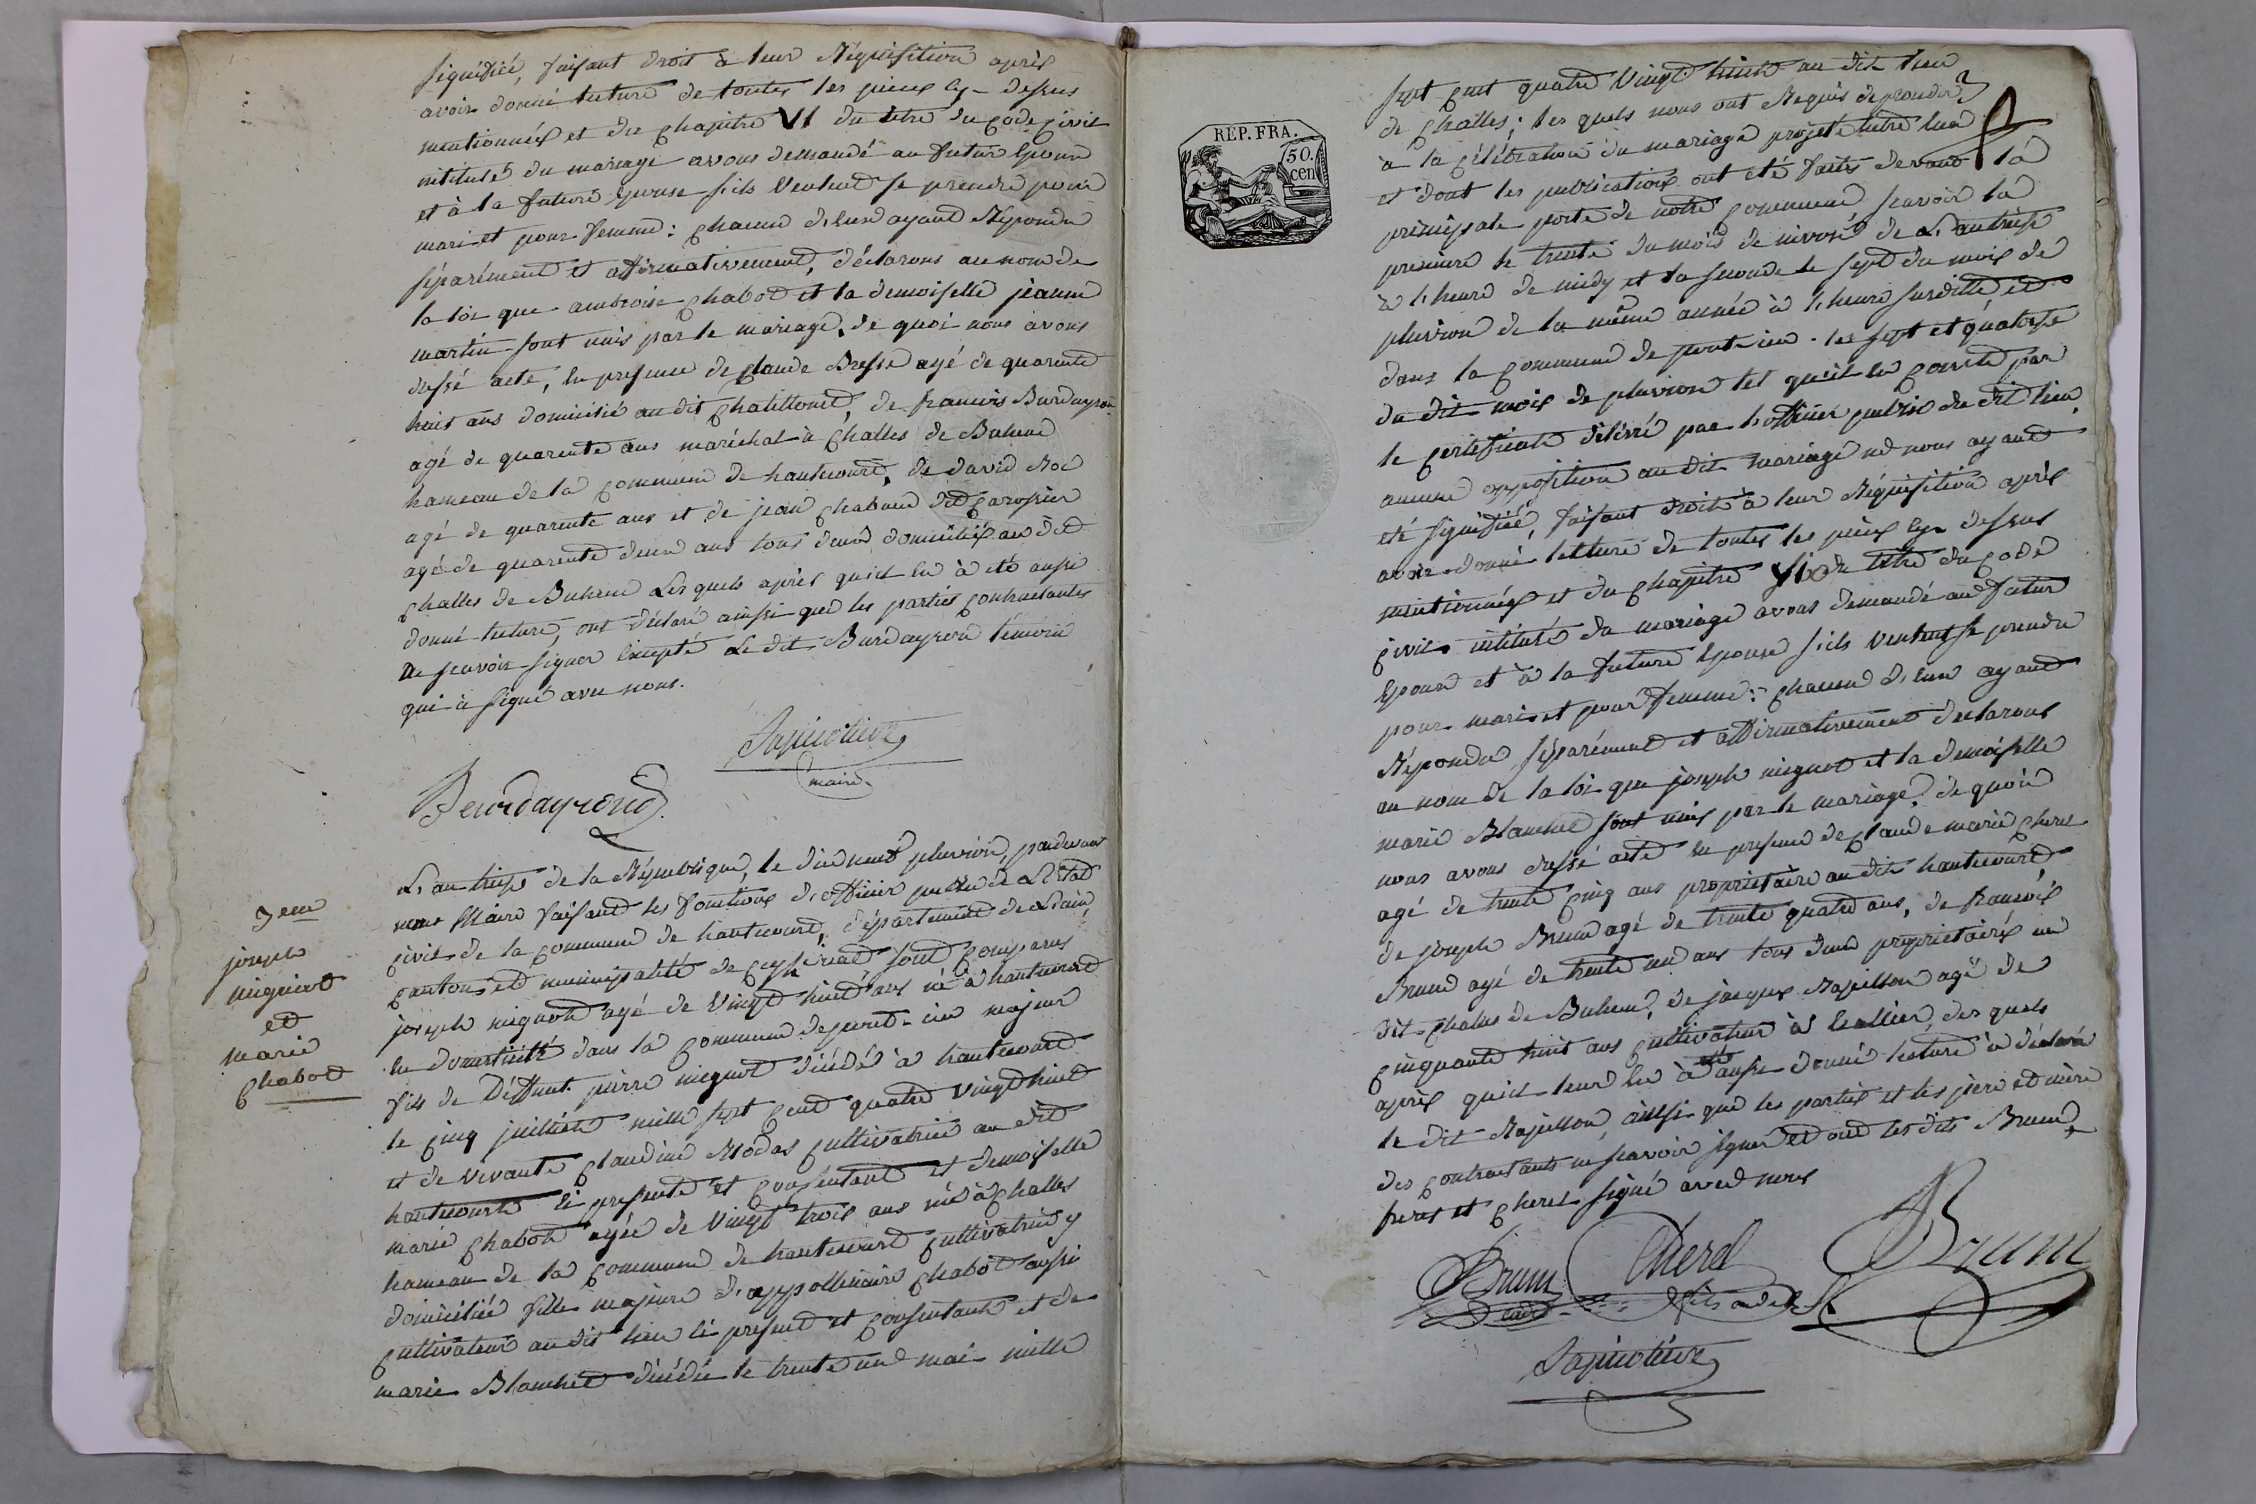 signifiée, faisant droit à leur Réquisition après
avoir donné lecture de toutes les pieces cy-dessus
mentionnées et du chapitre VI du titre du code civil
intitulé du mariage avons demandé au futur Epoux
et à la future Epouse s'ils veulent se prendre pour
mari et pour femme : chacun d'eux ayant Répondu
séparément et affirmativement, déclarons au nom de
la loi que ambroise chabot et la demoiselle jeanne
martin sont unis par le mariage, de quoi nous avons
dressé acte, en presence de claude Bresse agé de quarente
huit ans domicilié au dit chatillonet, de francois Burdeyron
agé de quarente ans maréchal à challes de Buhenc
hameau de la commune de hautecourt, de david Roc
agé de quarente ans et de jean chabaud dit
agé de quarente deux ans tous deux domiciliés au dit
challes de Buhenc Lesquels après qu'il en à été aussi
donné lecture, ont déclaré ainsi que les parties contractantes
ne scavoir signer Excepté Le dit Burdayron témoin
qui à signé avec nous.
maire
Beurdayrond
3eme
joseph
migniot
et
marie
chabod
L'an treize de la République, le dix neuf pluviose, pardevant
nous Maire faisant les fonctions d'officier public de L'Etat
civil de la commune de hautecourt, département de L'ain,
canton et municipalité de ceyseriat sont comparus
joseph mignot agé de vingt huit ans né à hautecourt
en domicilié dans la commune de pont-d'ain majeur
fils de Déffunt pierre mignot décédé à hautecourt
le cinq juillet mille sept cent quatre vingt huit
et de vivante claudine Rodas cultivatrice au dit
hautecourt ci presente et consentant et demoiselle
marie chabot agée de vingt trois ans née à challes
hameau de la commune de hautecourt cultivatrice y
domiciliée fille majeure d'appollinaire chabot aussi
cultivateur au dit lieu ci present et consentant et de
marie Blanchet décédée le trente un mai mille
REP. FRA.
50.
cen
sept cent quatre vingt huit au dit lieu
de challes ; les quels nous ont Requis de proceder
à la célébration du mariage projeté entre eux
et dont les publications ont été faites devant la
principale porte de notre commune scavoir la
premiere le trente du mois de nivose de L'an treize
à l'heure de midy et la seconde le sept du mois de
pluviose de la même année à l'heure susditte et
dans la commune de pont-d'ain les sept et quatorze
du dit mois de pluviose tel qu'il en conste par
le certificat délivré par l'officier public du dit lieu,
aucune opposition au dit mariage ne nous ayant
été signifiée, faisant droit à leur Réquisition après
avoir donné lecture de toutes les pieces cy dessus
mentionnées et du chapitre VI du titre du code
civil intitulé du mariage avons demandé au futur
Epoux et à la future Epouse s'ils veulent se prendre
pour mari et pour femme : chacun d'eux ayant
Répondu séparément et affirmativement déclarons
au nom de la loi que joseph mignot et la demoiselle
marie Blanchet sont unis par le mariage, de quoi
nous avons dressé acte en presence de claude marie cherel
agé de trente cinq ans propriétaire au dit hautecourt
de joseph Brun agé de trente quatre ans, de francois
Brun agé de trente un ans tous deux propriétaires au
dit challes de Buhenc, de jacques Rapillon agé de
cinquante huit ans cultivateur à, des quels
après qu'il leur en à été aussi donné lecture à déclaré
le dit Rapillon, ainsi que les parties et les père et mère
des contractants ne scavoir signer et ont les dits Brun,
freres et cherel signé avec nous
Brun Cherel Brun